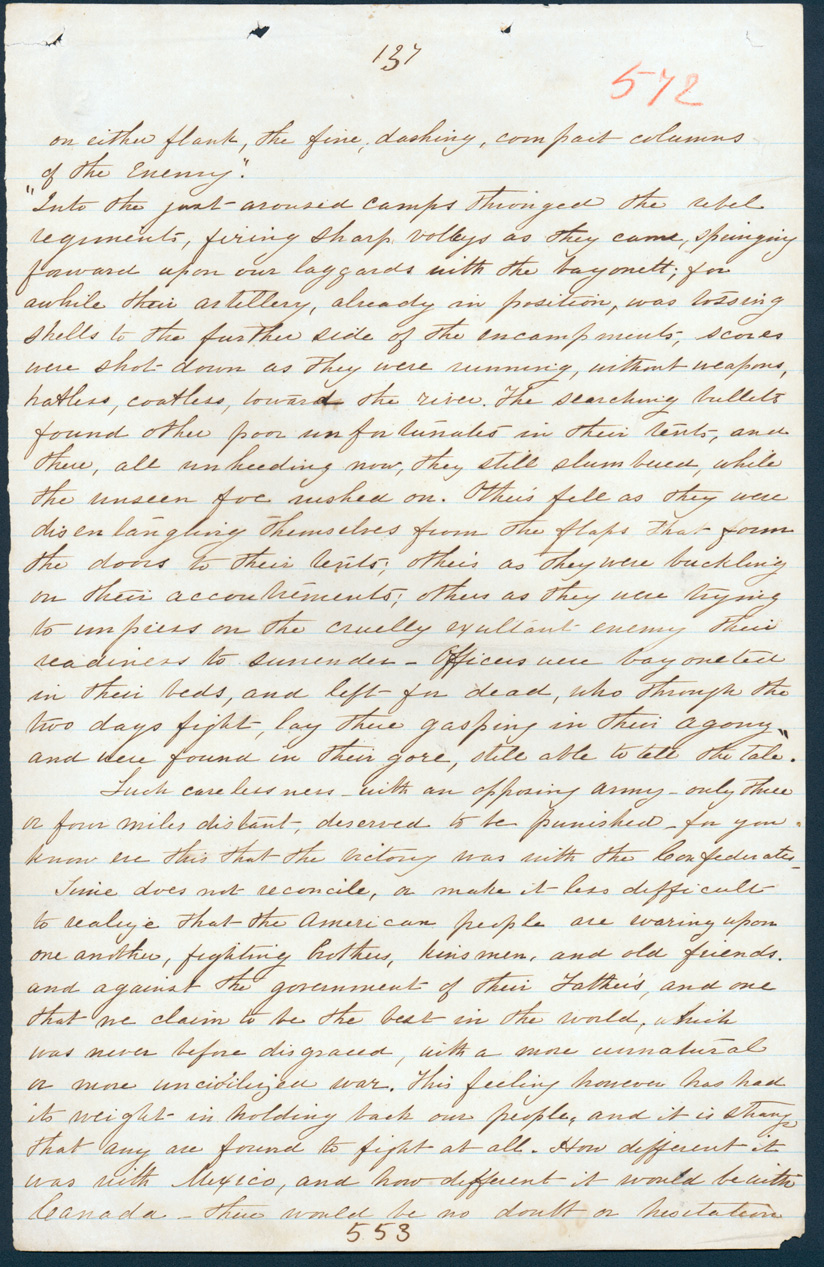 137
572
on either flank, the fine, dashing, compact columns
of the Enemy".
"Into the just aroused camps thronged the rebel
regiments, firing sharp volleys as they came, springing
forward upon our laggards with the bayonett; for
awhile their artillery, already in position, was tossing
shells to the further side of the encampments, scores
were shot down as they were running, without weapons,
hatless, coatless, toward the river. The searching bullets
found other poor unfortunates in their tents, and
there, all unheeding now, they still slumbered, while
the unseen foe rushed on. Others fell as they were
disentangling themselves from the flaps that form
the doors to their tents; others as they were buckling
on their accoutrements; others as they were trying
to impress on the cruelly exultant enemy their
readiness to surrender - Officers were bayoneted
in their beds, and left for dead, who through the
two days fight, lay there gasping in their agony
and were found in their gore, still able to tell the tale."
Such carelessness - with an opposing army - only three
or four miles distant, deserved to be punished - for you
know ere this that the victory was with the Confederates -
Time does not reconcile, or make it less difficult
to realize that the American people are waring upon
one another, fighting brothers, kinsmen, and old friends.
and against the government of their Fathers, and one
that we claim to be the best in the world, which
was never before disgraced, with a more unnatural
or more uncivilized war. This feeling however has had
its weight in holding back our people, and it is strange
that any are found to fight at all. How different it
was with Mexico, and how different it would be with
Canada - there would be no doubt or hesitation
553